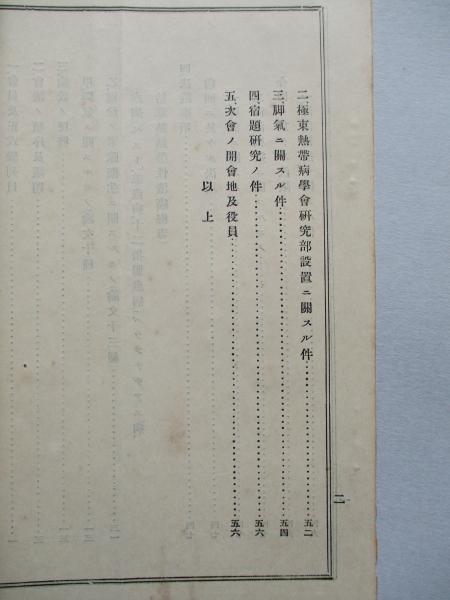 二、極東熱帶病學會研究部設置ニ關スル件……五二
三、脚氣ニ關スル件……五四
四、宿題研究ノ件……五六
五、次會ノ開會地及役員……五六
以上
二